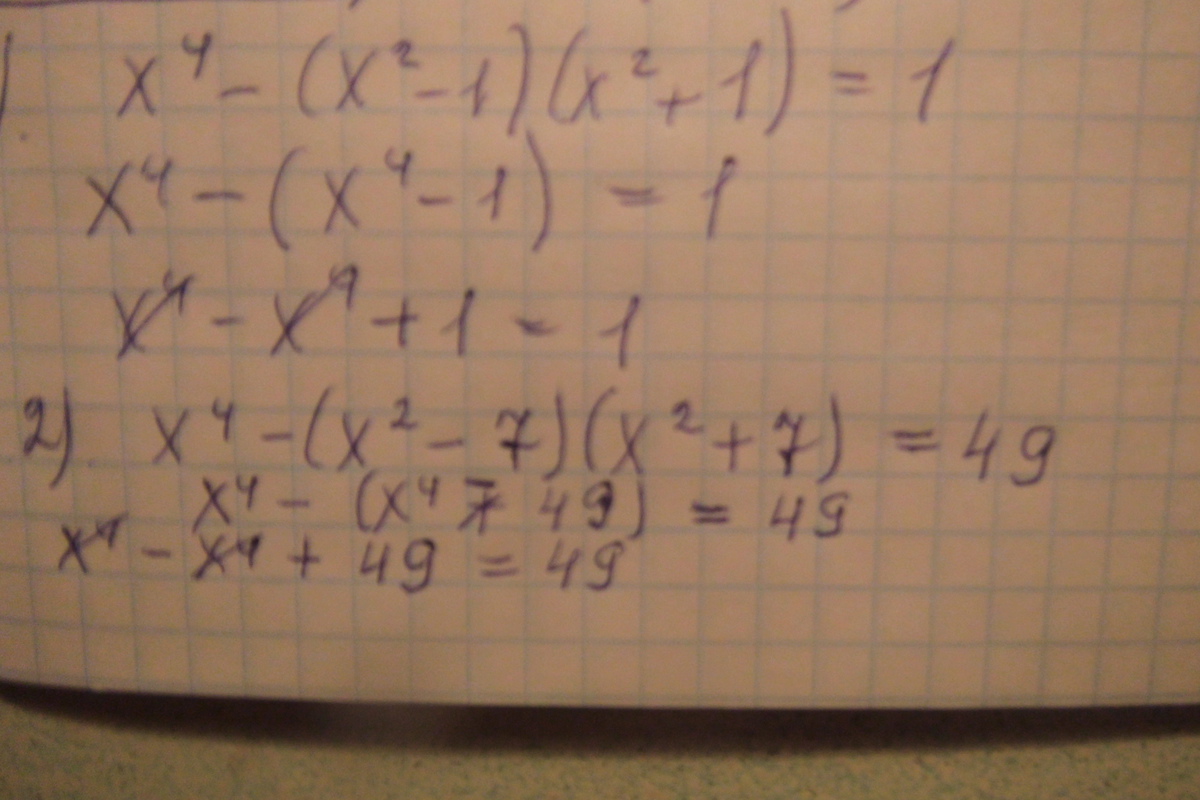 x⁴ - (x² - 1)(x² + 1) = 1
x⁴ - (x⁴ - 1) = 1
x⁴ - x⁴ + 1 = 1
2) x⁴ - (x² - 7)(x² + 7) = 49
x⁴ - (x⁴ - 49) = 49
x⁴ - x⁴ + 49 = 49